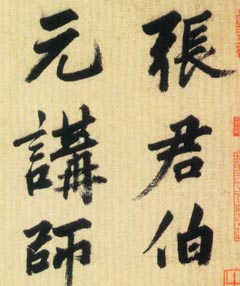 張君伯
元講師